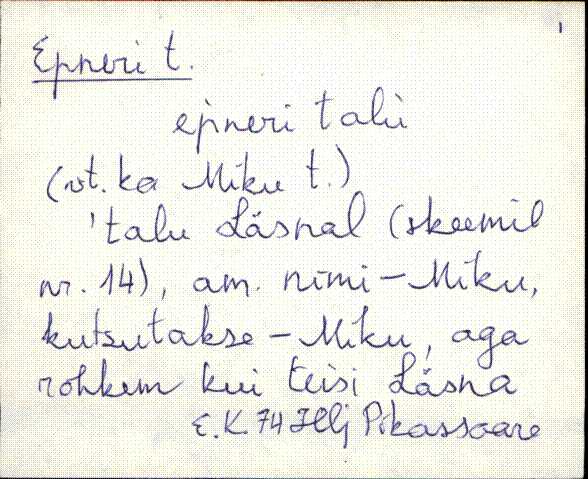 1
Epneri t.
epneri talu
(vt. ka Miku t.)
'talu Läsnal (skeemil
nr. 14), am. nimi - Miku,
kutsutakse - Miku, aga
rohkem kui teisi Läsna
E. K. 74 Pikassaare